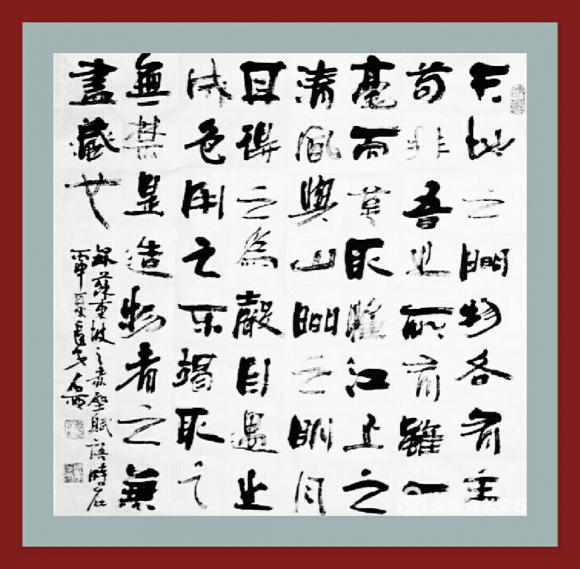 天地之間物各有主
苟非吾之所有雖一
毫而莫取惟江上之
清風與山間之明月
耳得之為聲目遇之
成色用之不竭取之
無禁是造物者之無
盡藏也
錄蘇東坡之赤壁賦語時在
丙申夏長安石